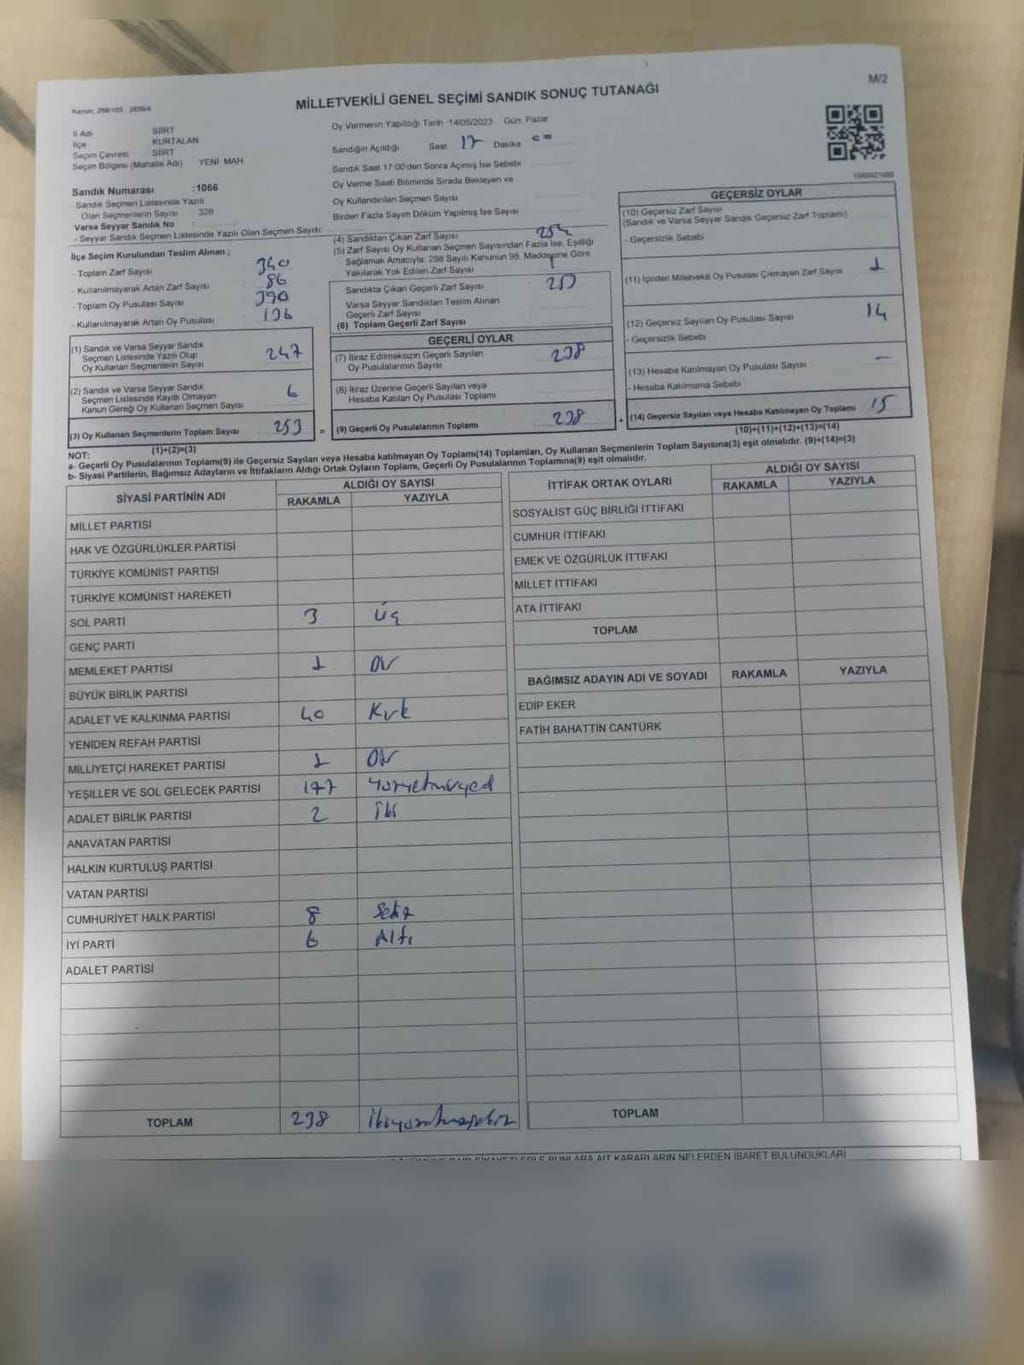 M/2
Kanun: 298/105 ; 2839/4
MİLLETVEKİLİ GENEL SEÇİMİ SANDIK SONUÇ TUTANAĞI
İl Adı SİİRT
İlçe KURTALAN
Seçim Çevresi SİİRT
Seçim Bölgesi (Mahalle Adı) YENİ MAH
Sandık Numarası :1066
- Sandık Seçmen Listesinde Yazılı
Olan Seçmenlerin Sayısı 328
Varsa Seyyar Sandık No :
- Seyyar Sandık Seçmen Listesinde Yazılı Olan Seçmen Sayısı:
Oy Vermenin Yapıldığı Tarih 14/05/2023 Gün Pazar
Sandığın Açıldığı Saat 17 Dakika 00
Sandık Saat 17:00'den Sonra Açımış İse Sebebi
Oy Verme Saati Bitiminde Sırada Bekleyen ve
Oy Kullandırılan Seçmen Sayısı
Birden Fazla Sayım Döküm Yapılmış İse Sayısı
İlçe Seçim Kurulundan Teslim Alınan ;
- Toplam Zarf Sayısı 340
- Kullanılmayarak Artan Zarf Sayısı 86
- Toplam Oy Pusulası Sayısı 390
- Kullanılmayarak Artan Oy Pusulası 136
(1) Sandık ve Varsa Seyyar Sandık
Seçmen Listesinde Yazılı Olup
Oy Kullanan Seçmenlerin Sayısı 247
(2) Sandık ve Varsa Seyyar Sandık
Seçmen Listesinde Kayıtlı Olmayan
Kanun Gereği Oy Kullanan Seçmen Sayısı 6
(3) Oy Kullanan Seçmenlerin Toplam Sayısı 253 =
(1)+(2)=(3)
(4) Sandıktan Çıkan Zarf Sayısı 254
(5) Zarf Sayısı Oy Kullanan Seçmen Sayısından Fazla İse, Eşitliği
Sağlamak Amacıyla: 298 Sayılı Kanunun 98. Maddesine Göre
Yakılarak Yok Edilen Zarf Sayısı 1
Sandıkta Çıkan Geçerli Zarf Sayısı 253
Varsa Seyyar Sandıktan Teslim Alınan
Geçerli Zarf Sayısı
(6) Toplam Geçerli Zarf Sayısı
GEÇERLİ OYLAR
(7) İtiraz Edilmeksizin Geçerli Sayılan
Oy Pusulalarının Sayısı 238
(8) İtiraz Üzerine Geçerli Sayılan veya
Hesaba Katılan Oy Pusulası Toplamı
(9) Geçerli Oy Pusulalarının Toplamı 238 +
GEÇERSİZ OYLAR
(10) Geçersiz Zarf Sayısı
(Sandık ve Varsa Seyyar Sandık Geçersiz Zarf Toplamı)
- Geçersizlik Sebebi
(11) İçinden Milletvekili Oy Pusulası Çıkmayan Zarf Sayısı 1
(12) Geçersiz Sayılan Oy Pusulası Sayısı 14
- Geçersizlik Sebebi
(13) Hesaba Katılmayan Oy Pusulası Sayısı –
- Hesaba Katılmama Sebebi
(14) Geçersiz Sayılan veya Hesaba Katılmayan Oy Toplamı 15
(10)+(11)+(12)+(13)=(14)
NOT:
a- Geçerli Oy Pusulalarının Toplamı(9) ile Geçersiz Sayılan veya Hesaba katılmayan Oy Toplamı(14) Toplamları, Oy Kullanan Seçmenlerin Toplam Sayısına(3) eşit olmalıdır. (9)+(14)=(3)
b- Siyasi Partilerin, Bağımsız Adayların ve İttifakların Aldığı Ortak Oyların Toplamı, Geçerli Oy Pusulalarının Toplamına(9) eşit olmalıdır.
SİYASİ PARTİNİN ADI ALDIĞI OY SAYISI
RAKAMLA YAZIYLA
MİLLET PARTİSİ
HAK VE ÖZGÜRLÜKLER PARTİSİ
TÜRKİYE KOMÜNİST PARTİSİ
TÜRKİYE KOMÜNİST HAREKETİ
SOL PARTİ 3 Üç
GENÇ PARTİ
MEMLEKET PARTİSİ 1
BÜYÜK BİRLİK PARTİSİ
ADALET VE KALKINMA PARTİSİ 40 Kırk
YENİDEN REFAH PARTİSİ
MİLLİYETÇİ HAREKET PARTİSİ 1
YEŞİLLER VE SOL GELECEK PARTİSİ 177
ADALET BİRLİK PARTİSİ 2 iki
ANAVATAN PARTİSİ
HALKIN KURTULUŞ PARTİSİ
VATAN PARTİSİ
CUMHURİYET HALK PARTİSİ 8 Sekiz
İYİ PARTİ 6 Altı
ADALET PARTİSİ
TOPLAM 238
İTTİFAK ORTAK OYLARI ALDIĞI OY SAYISI
RAKAMLA YAZIYLA
SOSYALİST GÜÇ BİRLİĞİ İTTİFAKI
CUMHUR İTTİFAKI
EMEK VE ÖZGÜRLÜK İTTİFAKI
MİLLET İTTİFAKI
ATA İTTİFAKI
TOPLAM
BAĞIMSIZ ADAYIN ADI VE SOYADI RAKAMLA YAZIYLA
EDİP EKER
FATİH BAHATTİN CANTÜRK
TOPLAM
BUNLARA AİT KARARLARIN NELERDEN İBARET BULUNDUKLARI